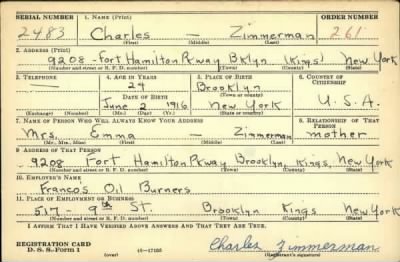 SERIAL NUMBER 1. NAME (Print) ORDER NUMBER
2483 Charles — Zimmerman 261
(First) (Middle) (Last)
2. ADDRESS (Print)
9208 - Fort Hamilton Pkway Bklyn (Kings) New York
(Number and street or R. F. D. number) (Town) (County) (State)
3. TELEPHONE 4. AGE IN YEARS 5. PLACE OF BIRTH 6. COUNTRY OF CITIZENSHIP
— 24 Brooklyn
DATE OF BIRTH (Town or county)
June 2 1916 New York U.S.A.
(Exchange) (Number) (Mo.) (Day) (Yr.) (State or country)
7. NAME OF PERSON WHO WILL ALWAYS KNOW YOUR ADDRESS 8. RELATIONSHIP OF THAT PERSON
Mrs. Emma — Zimmerman mother
(Mr., Mrs., Miss) (First) (Middle) (Last)
9. ADDRESS OF THAT PERSON
9208 Fort Hamilton Pkway Brooklyn, Kings, New York
(Number and street or R. F. D. number) (Town) (County) (State)
10. EMPLOYER'S NAME
Francos Oil Burners
11. PLACE OF EMPLOYMENT OR BUSINESS
517 - 9th St. Brooklyn Kings New York
(Number and street or R. F. D. number) (Town) (County) (State)
I AFFIRM THAT I HAVE VERIFIED ABOVE ANSWERS AND THAT THEY ARE TRUE.
REGISTRATION CARD
D. S. S. Form 1 (over) Charles Zimmerman
(Registrant's signature)